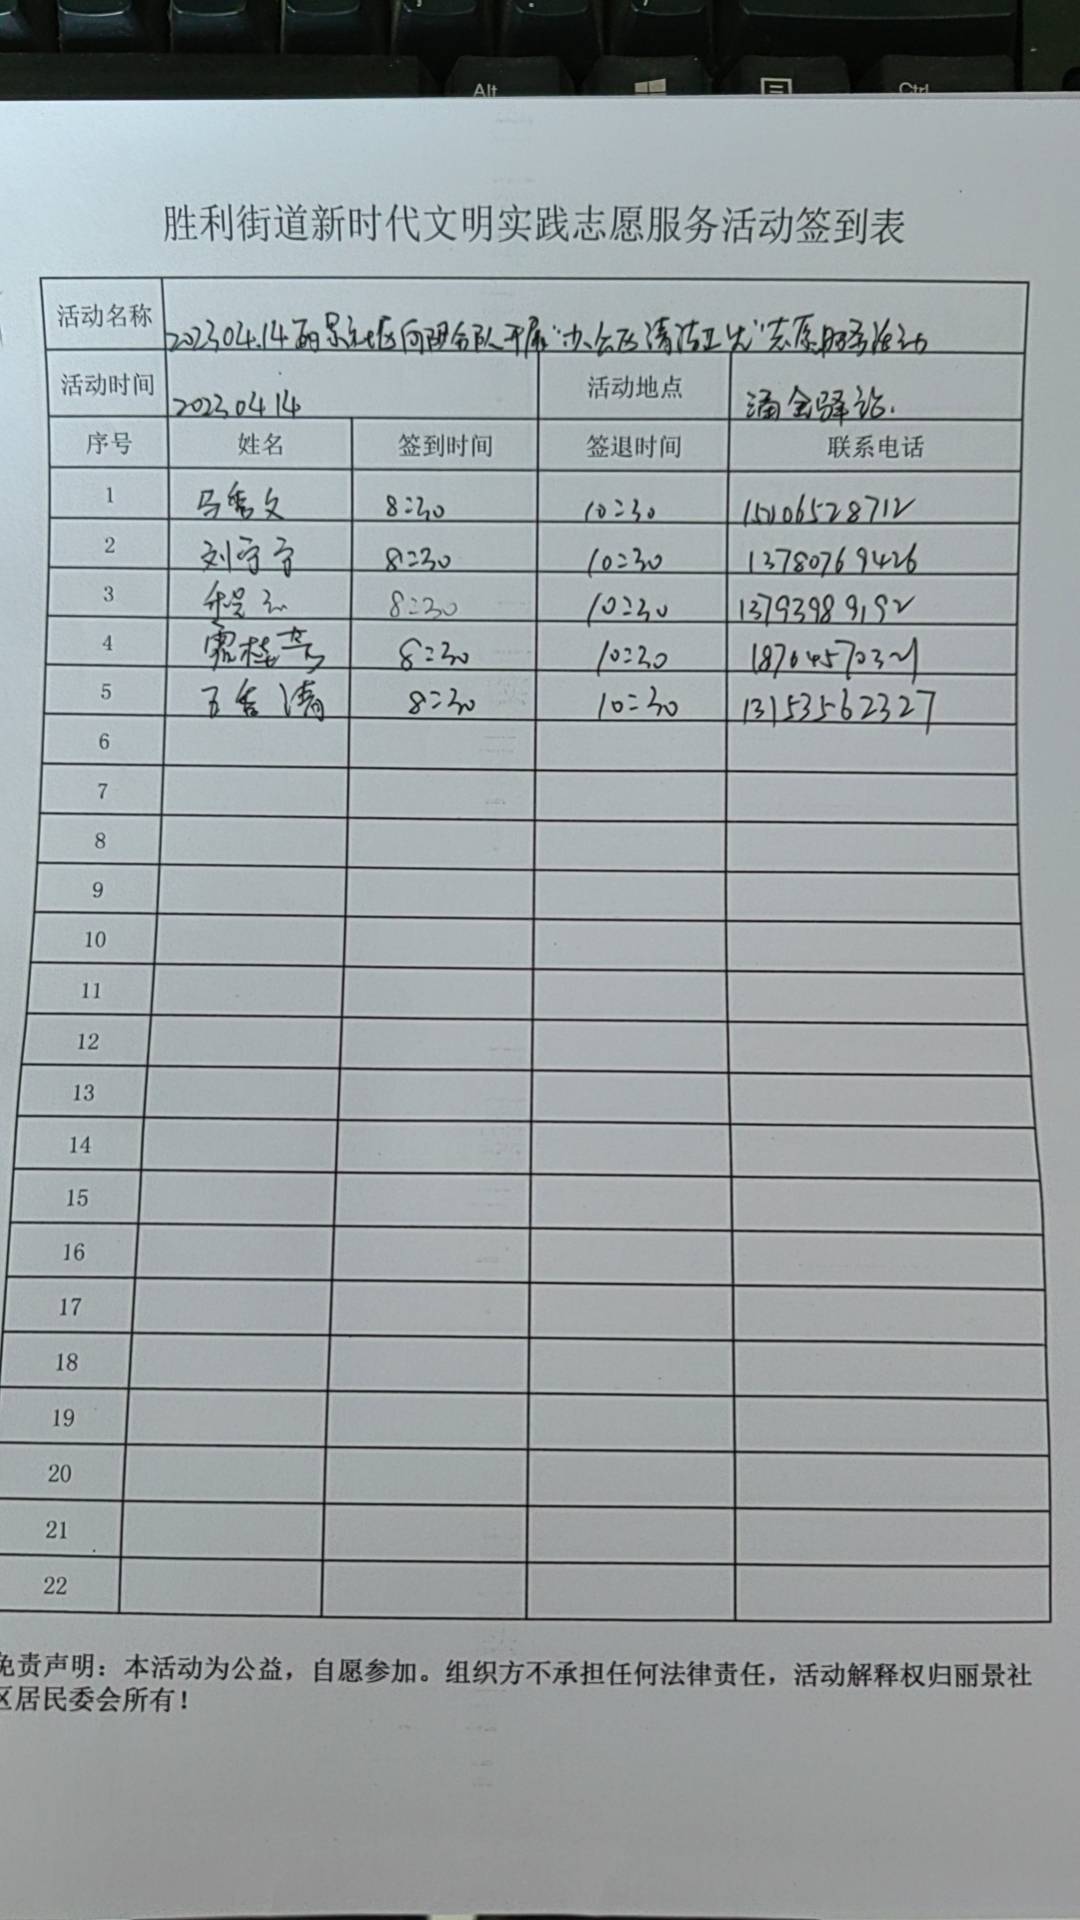 Alt Ctrl
胜利街道新时代文明实践志愿服务活动签到表
活动名称 20230414丽景社区向阳分队开展"办公区清洁卫生"志愿服务活动
活动时间 20230414 活动地点 涌金驿站
序号 姓名 签到时间 签退时间 联系电话
1 马秀文 8:30 10:30 15106528712
2 刘宁宁 8:30 10:30 13780769426
3 程 8:30 10:30 13793989192
4 桂芳 8:30 10:30
5 王秀清 8:30 10:30 13153562327
6
7
8
9
10
11
12
13
14
15
16
17
18
19
20
21
22
免责声明：本活动为公益，自愿参加。组织方不承担任何法律责任，活动解释权归丽景社
区居民委会所有！